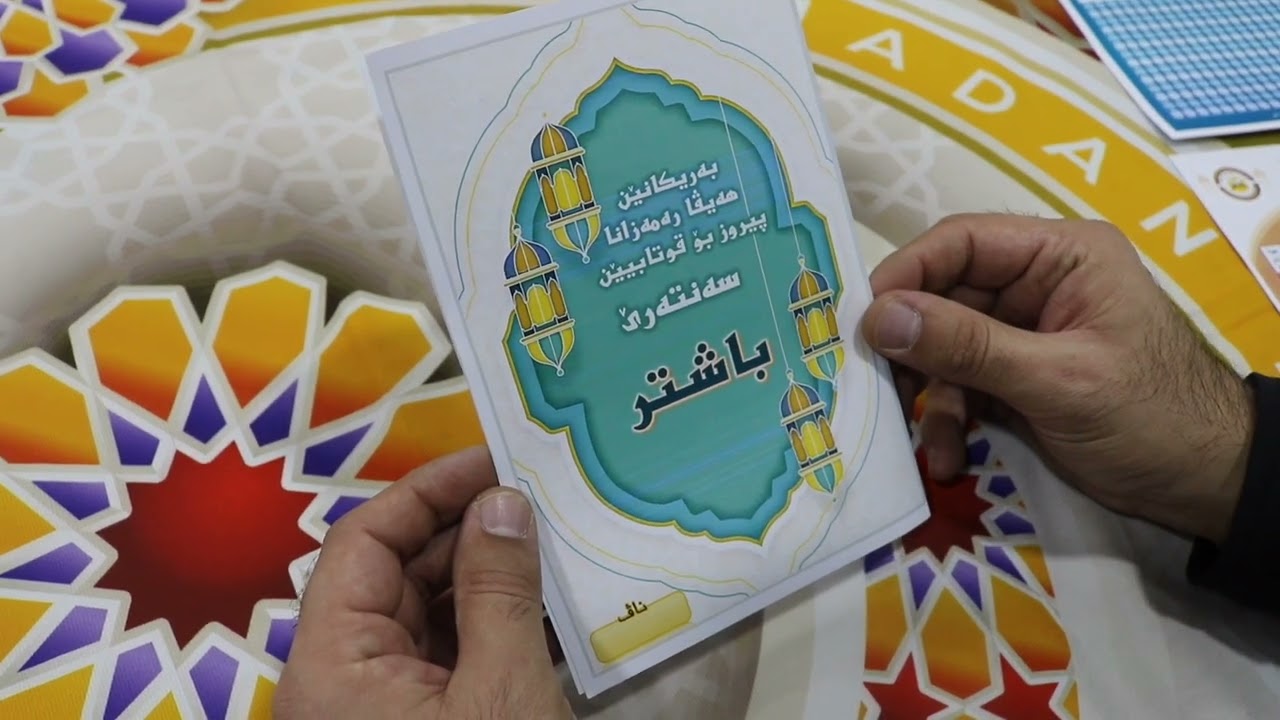 بەریکانێن
هەیڤا رەمەزانا
پیروز بۆ قوتابییێن
سەنتەرێ
باشتر
ناڤ
ADAN